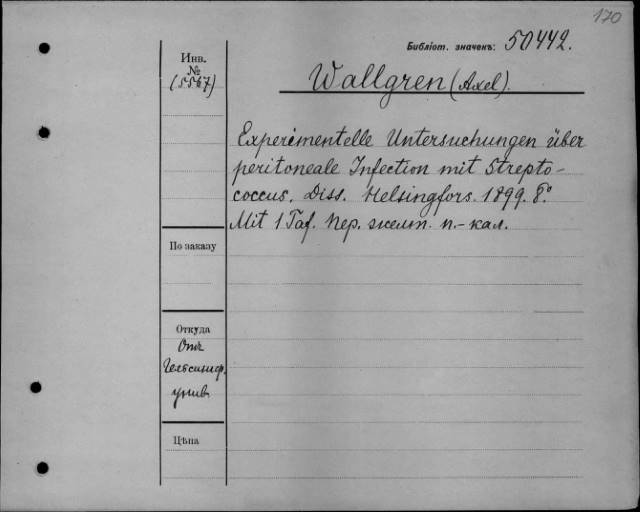 170
Библіот. значекъ: 50442.
Инв.
№
(5567)
Wallgren (Axel).
Experimentelle Untersuchungen über
peritoneale Infection mit Strepto-
coccus. Diss. Helsingfors. 1899. 8°.
Mit 1 Taf. Пер. желт. п.-кал.
По заказу
Откуда
Отъ
Гельсингф.
унив.
Цѣна